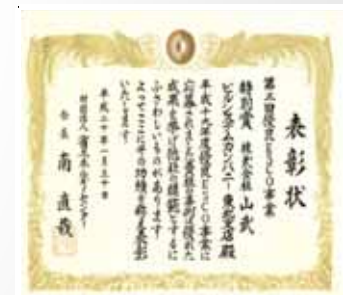 表彰状
第三回優良ESCO事業
特別賞 株式会社 山武
ビルシステムカンパニー 東北支店 殿
平成十九年度優良ESCO事業に
応募されました貴社の事例は優れた
成果を挙げ他社の模範とするに
ふさわしいものがあります
よってここにその功績を称え表彰
いたします
平成二十年一月三十日
財団法人 省エネルギーセンター
会長 南 直哉